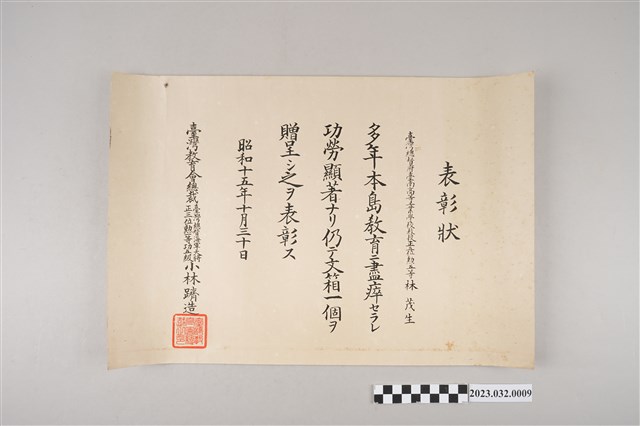 表彰狀
臺灣總督府臺南高等工業學校教授正五位勳五等 林茂生
多年本島教育ニ盡瘁セラレ
功勞顯著ナリ仍テ文箱一個ヲ
贈呈シ之ヲ表彰ス
昭和十五年十月三十日
臺灣教育會總裁 臺灣總督海軍大將
正三位勳一等功五級 小林躋造
2023.032.0009